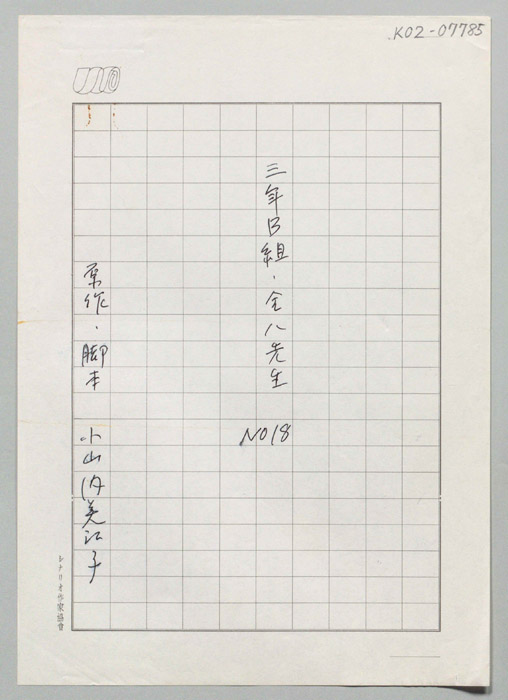 K02-07785
三年B組・金八先生
NO18
原作・脚本 小山内美江子
シナリオ作家協會